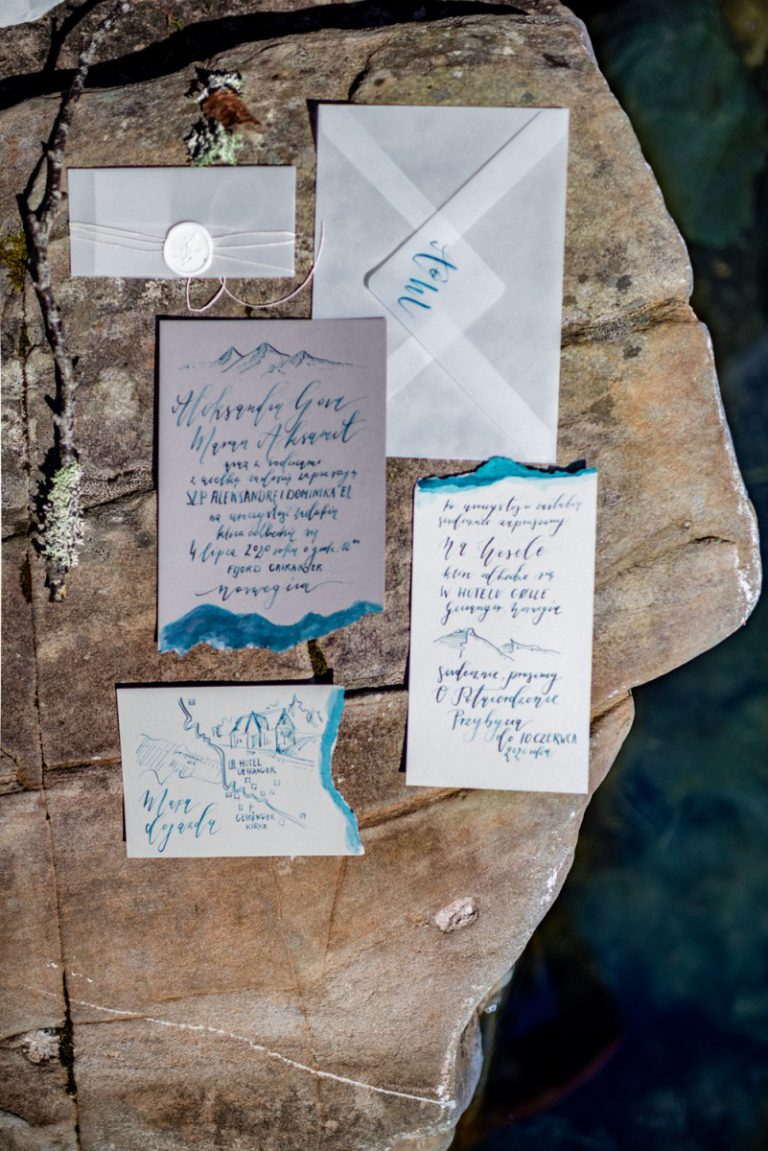 Aleksandra
Marcin Aksamit
wraz z rodzicami
z wielką radością zapraszają
SZ.P. ALEKSANDRĘ I DOMINIKA EL
na uroczystość zaślubin
która odbędzie się
4 lipca 2020 roku o godz. 12⁰⁰
FIJORD GAIRANGER
norwegia
Po uroczystości zaślubin
serdecznie zapraszamy
Na Wesele
które odbędzie się
W HOTELU
Geiranger Norwegia
Serdecznie prosimy
O Potwierdzenie
Przybycia
do 10 CZERWCA
2020 roku
HOTEL
GEIRANGER
Mapa
dojazdu
GEIRANGER
KIRKE